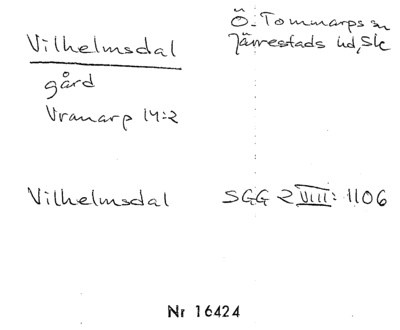 Vilhelmsdal
Ö. Tommarps sn
Järrestads hd, Sk
gård
Vranarp 14:2
Vilhelmsdal SGG 2 VIII: 1106
Nr 16424